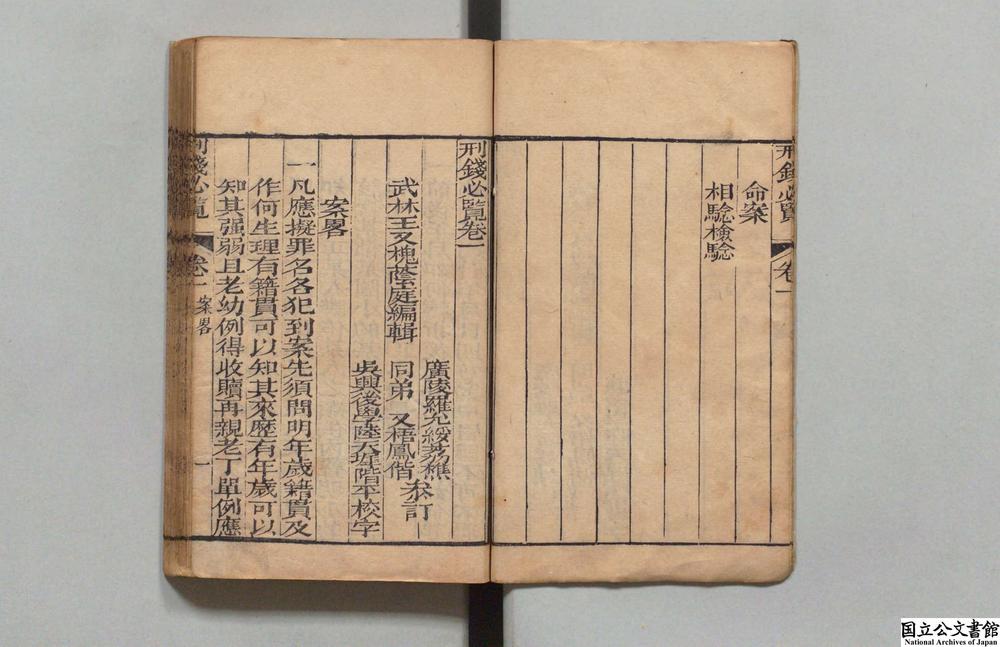 刑錢必覽 卷一
命案
相驗檢驗
刑錢必覽卷一
廣陵羅允綏荔樵
武林王又槐蔭庭編輯 同弟 又梧鳳偕 叅訂
吳興後學陸天墀階平校字
案畧
一凡應擬罪名各犯到案先須問明年歲籍貫及
作何生理有籍貫可以知其來歷有年歲可以
知其强弱且老幼例得收贖再親老丁單例應
刑錢必覽 卷一 案畧 一
国立公文書館
National Archives of Japan